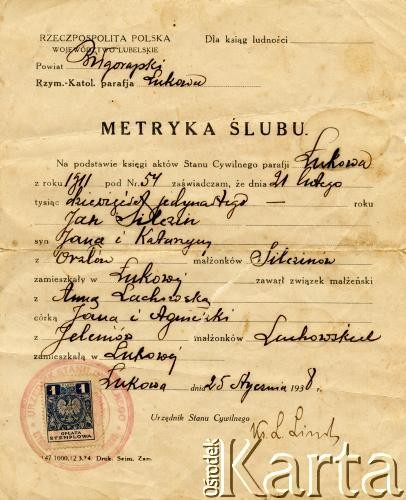 RZECZPOSPOLITA POLSKA
WOJEWÓDZTWO LUBELSKIE
Dla ksiąg ludności
Powiat Biłgorajski
Rzym.-Katol. parafja Łukowa
METRYKA ŚLUBU.
Na podstawie księgi aktów Stanu Cywilnego parafji Łukowa
z roku 1911 pod Nr. 54 zaświadczam, że dnia 21 lutego
tysiąc dziewięćset jedynastego — roku
Jan
syn Jana i Katarzyny
z małżonków
zamieszkały w Łukowej zawarł związek małżeński
z Anną Lachowską
córką Jana i Agnieszki
z małżonków
zamieszkałą w Łukowej
Łukowa dnia 25 stycznia 1938 r.
Urzędnik Stanu Cywilnego
1 1
OPŁATA
STEMPLOWA
Druk. Sejm. Zam.
Ośrodek
Karta